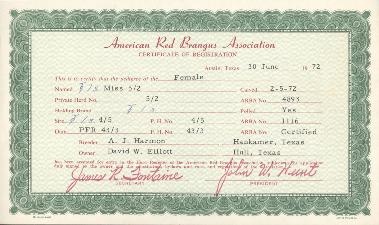 American Red Brangus Association
CERTIFICATE OF REGISTRATION
Austin, Texas 30 June 1972
This is to certify that the pedigree of the Female
Named Miss 5/2 Calved 2-5-72
Private Herd No. 5/2 ARBA No. 4893
Holding Brand Polled Yes
Sire 4/5 P. H. No. 4/5 ARBA No. 1116
Dam PFR 43/3 P. H. No. 43/3 ARBA No. Certified
Breeder A. J. Harmon Hankamer, Texas
Owner David W. Elliott Hull, Texas
James R. Fontaine John W. Hunt
SECRETARY PRESIDENT